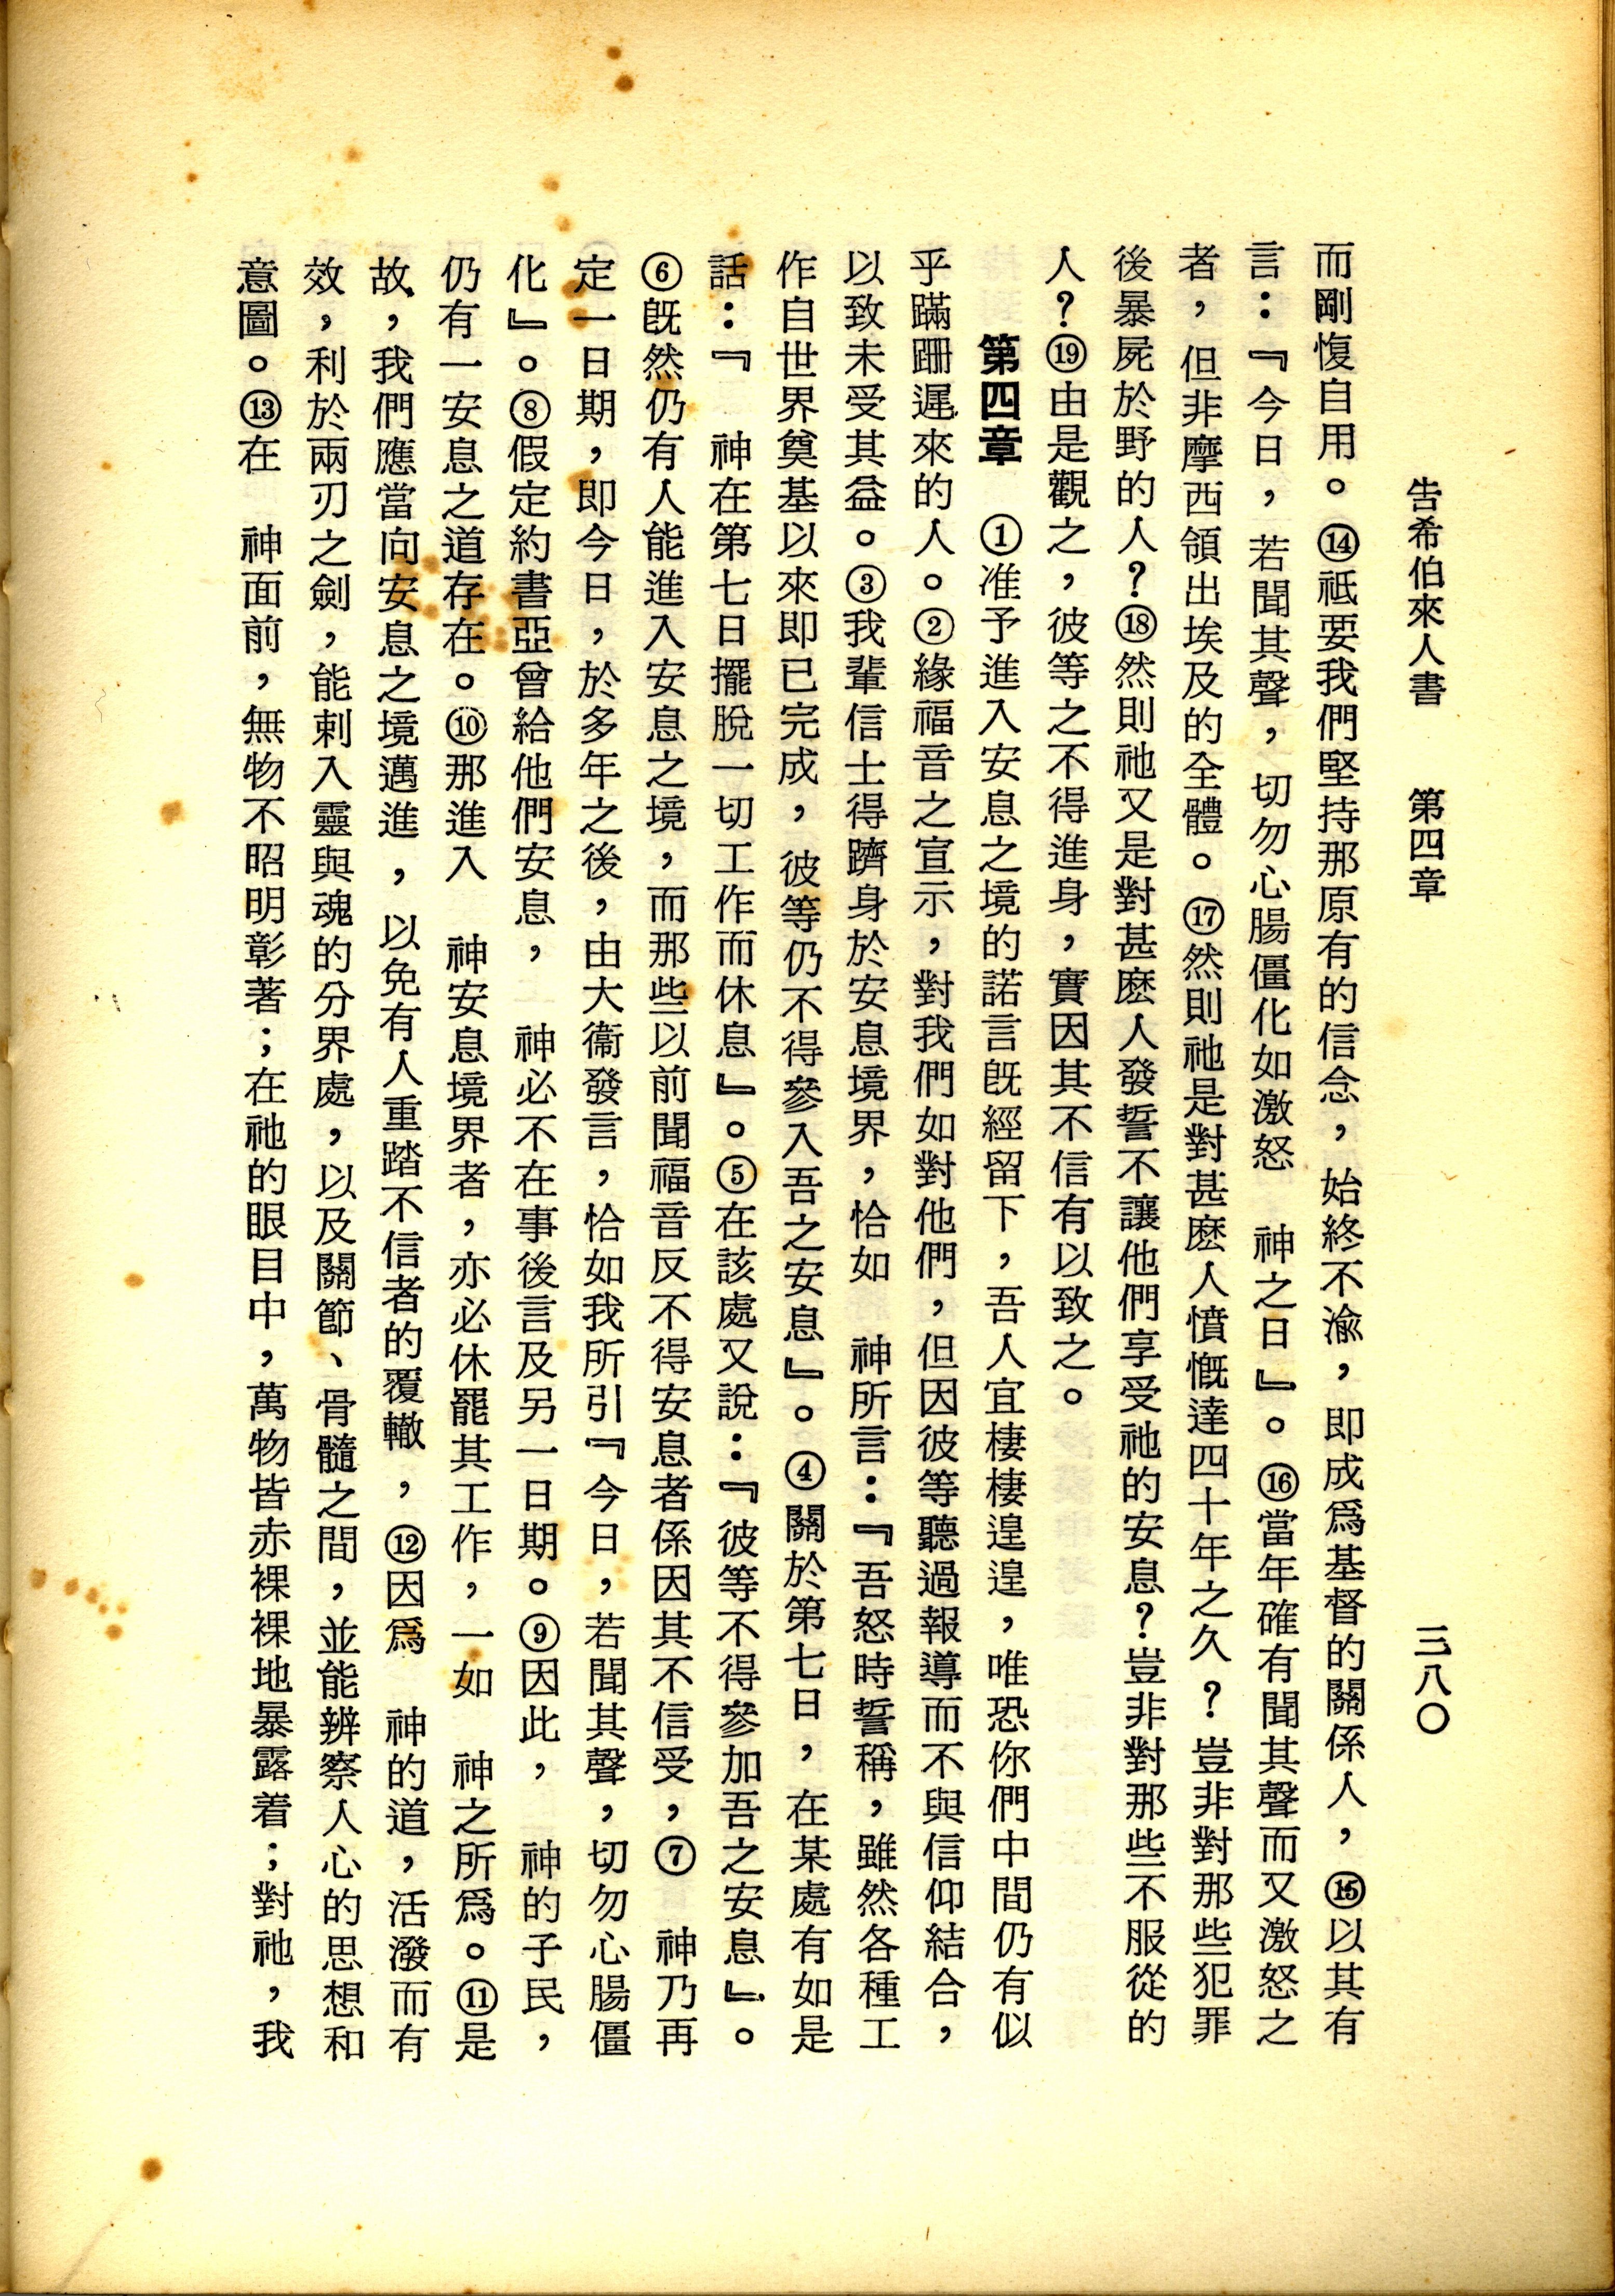 告希伯來人書　第四章　三八〇
而剛愎自用。⑭祇要我們堅持那原有的信念，始終不渝，即成爲基督的關係人，⑮以其有
言：『今日，若聞其聲，切勿心腸僵化如激怒　神之日』。⑯當年確有聞其聲而又激怒之
者，但非摩西領出埃及的全體。⑰然則祂是對甚麼人憤慨達四十年之久？豈非對那些犯罪
後暴屍於野的人？⑱然則祂又是對甚麼人發誓不讓他們享受祂的安息？豈非對那些不服從的
人？⑲由是觀之，彼等之不得進身，實因其不信有以致之。
第四章　①准予進入安息之境的諾言既經留下，吾人宜棲棲遑遑，唯恐你們中間仍有似
乎蹣跚遲來的人。②緣福音之宣示，對我們如對他們，但因彼等聽過報導而不與信仰結合，
以致未受其益。③我輩信士得躋身於安息境界，恰如　神所言：『吾怒時誓稱，雖然各種工
作自世界奠基以來即已完成，彼等仍不得參入吾之安息』。④關於第七日，在某處有如是
話：『　神在第七日擺脫一切工作而休息』。⑤在該處又說：『彼等不得參加吾之安息』。
⑥既然仍有人能進入安息之境，而那些以前聞福音反不得安息者係因其不信受，⑦　神乃再
定一日期，即今日，於多年之後，由大衞發言，恰如我所引『今日，若聞其聲，切勿心腸僵
化』。⑧假定約書亞曾給他們安息，　神必不在事後言及另一日期。⑨因此，　神的子民，
仍有一安息之道存在。⑩那進入　神安息境界者，亦必休罷其工作，一如　神之所爲。⑪是
故，我們應當向安息之境邁進，以免有人重踏不信者的覆轍，⑫因爲　神的道，活潑而有
效，利於兩刃之劍，能刺入靈與魂的分界處，以及關節、骨髓之間，並能辨察人心的思想和
意圖。⑬在　神面前，無物不昭明彰著；在祂的眼目中，萬物皆赤裸裸地暴露着；對祂，我